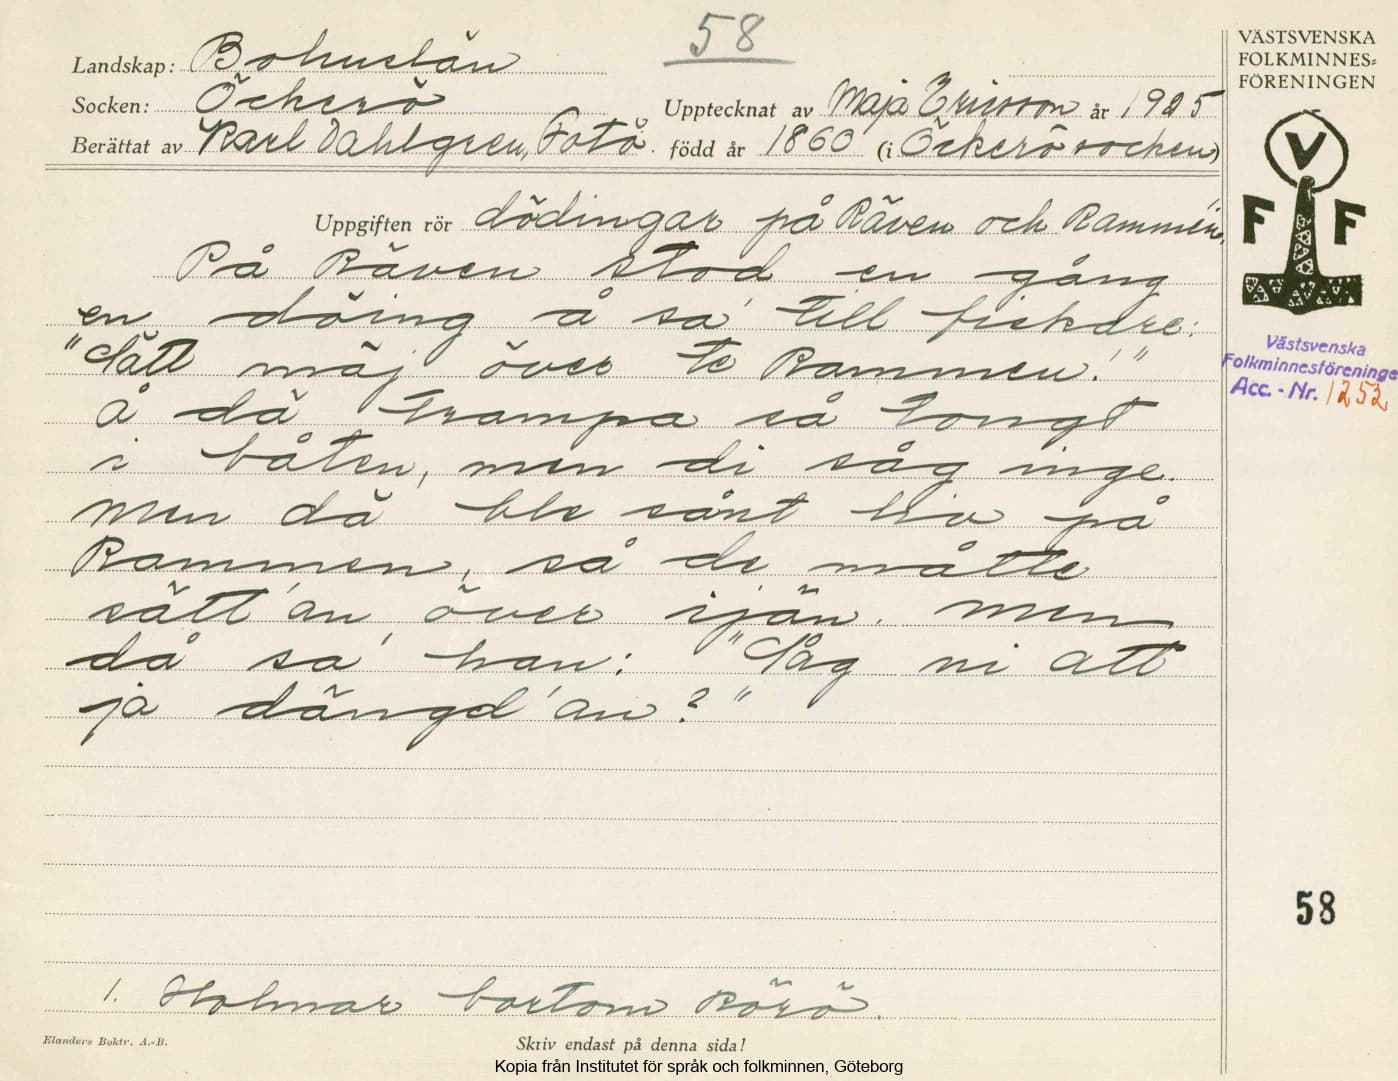 58
Landskap: Bohuslän
Socken: Öckerö
Upptecknat av Maja Ericsson år 1925
Berättat av Karl Dahlgren, Fotö. född år 1860 (i Öckerö socken)
VÄSTSVENSKA
FOLKMINNES=
FÖRENINGEN
V
F F
Uppgiften rör dödingar på Räven och Rammen.
På Räven stod en gång
en döing å sa' till fiskare:
"Sätt mäj över te Rammen!"
Å dä trampa så tongt
i båten, men di såg inge.
Men dä ble sånt liv på
Rammen, så de måtte
sätt'an över ijän. Men
då sa' han: "Såg ni att
ja dängd'an?"
Västsvenska
Folkminnesföreninge
Acc. - Nr. 1252
58
1. Holmar bortom Rörö.
Elanders Boktr. A.-B.
Skriv endast på denna sida!
Kopia från Institutet för språk och folkminnen, Göteborg